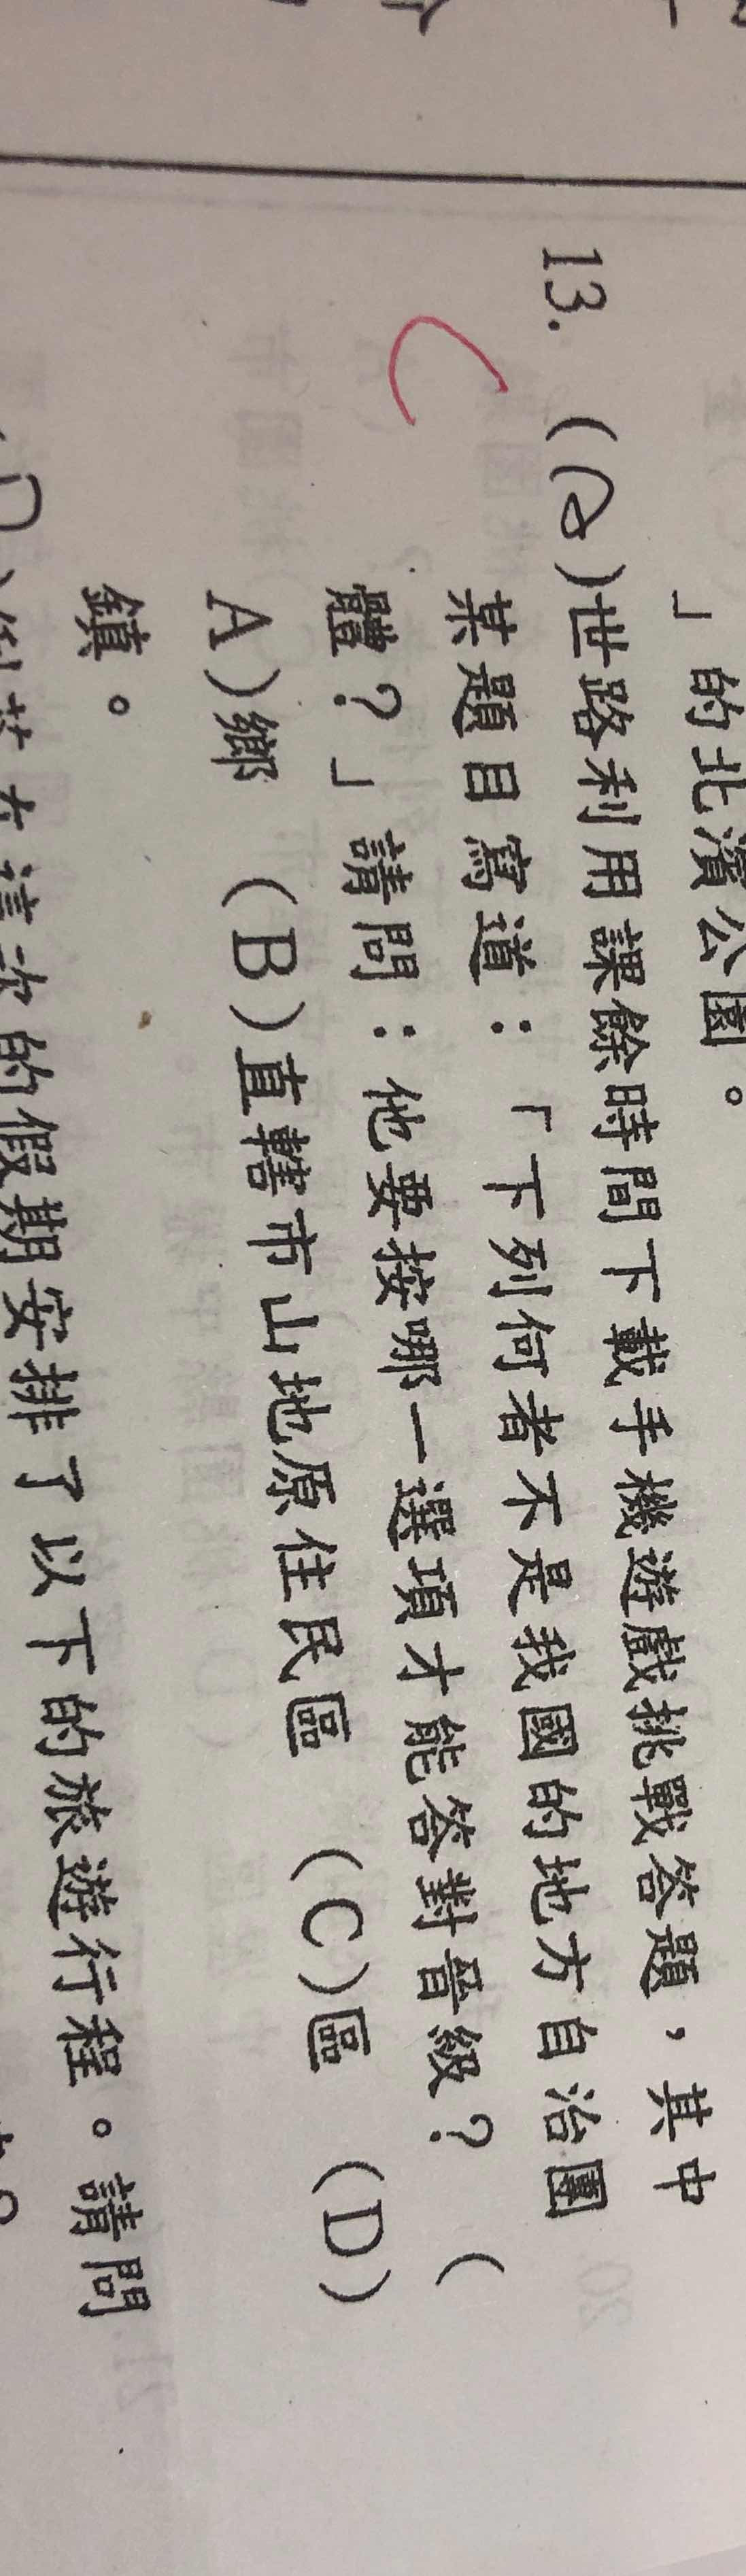 」的北濱公園。
13. (a)世路利用課餘時間下載手機遊戲挑戰答題，其中
某題目寫道：「下列何者不是我國的地方自治團
體？」請問：他要按哪一選項才能答對晉級？ (
A)鄉 (B)直轄市山地原住民區 (C)區 (D)
鎮。
C
的假期安排了以下的旅遊行程。請問